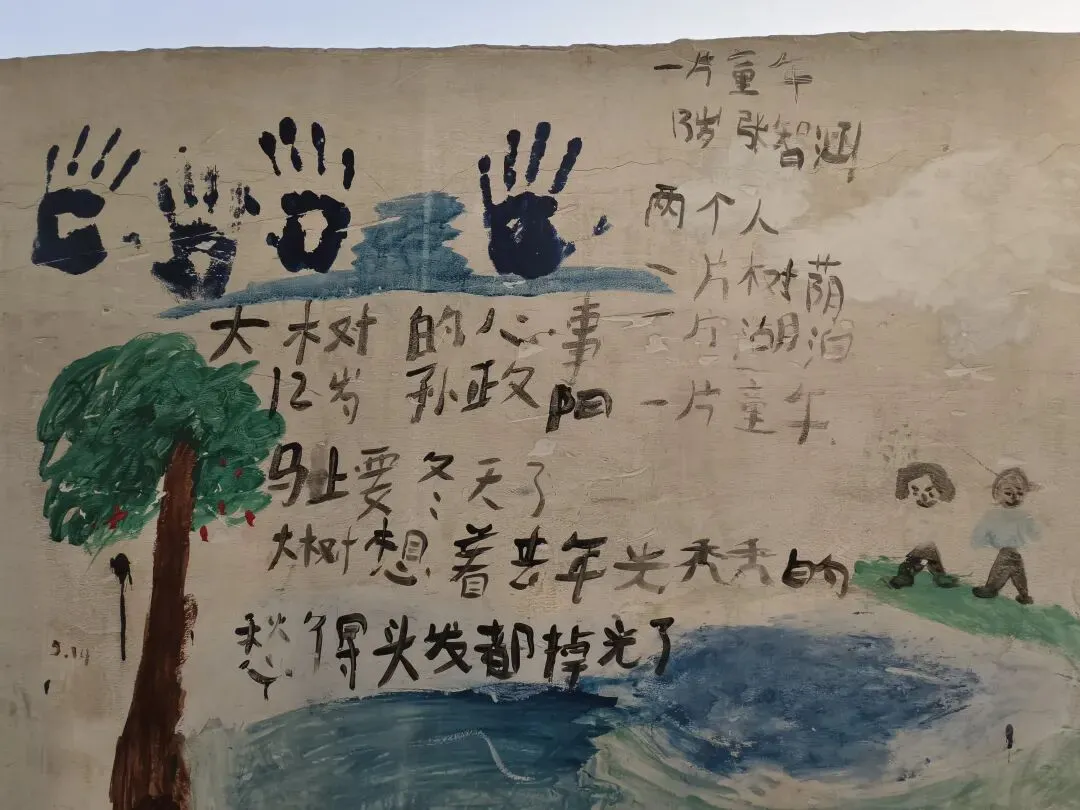 一片童年
13岁 张智涵
两个人
一片树荫
一个湖泊
一片童年
大树的心事
12岁 孙政阳
马上要冬天了
大树想着去年光秃秃的
愁得头发都掉光了